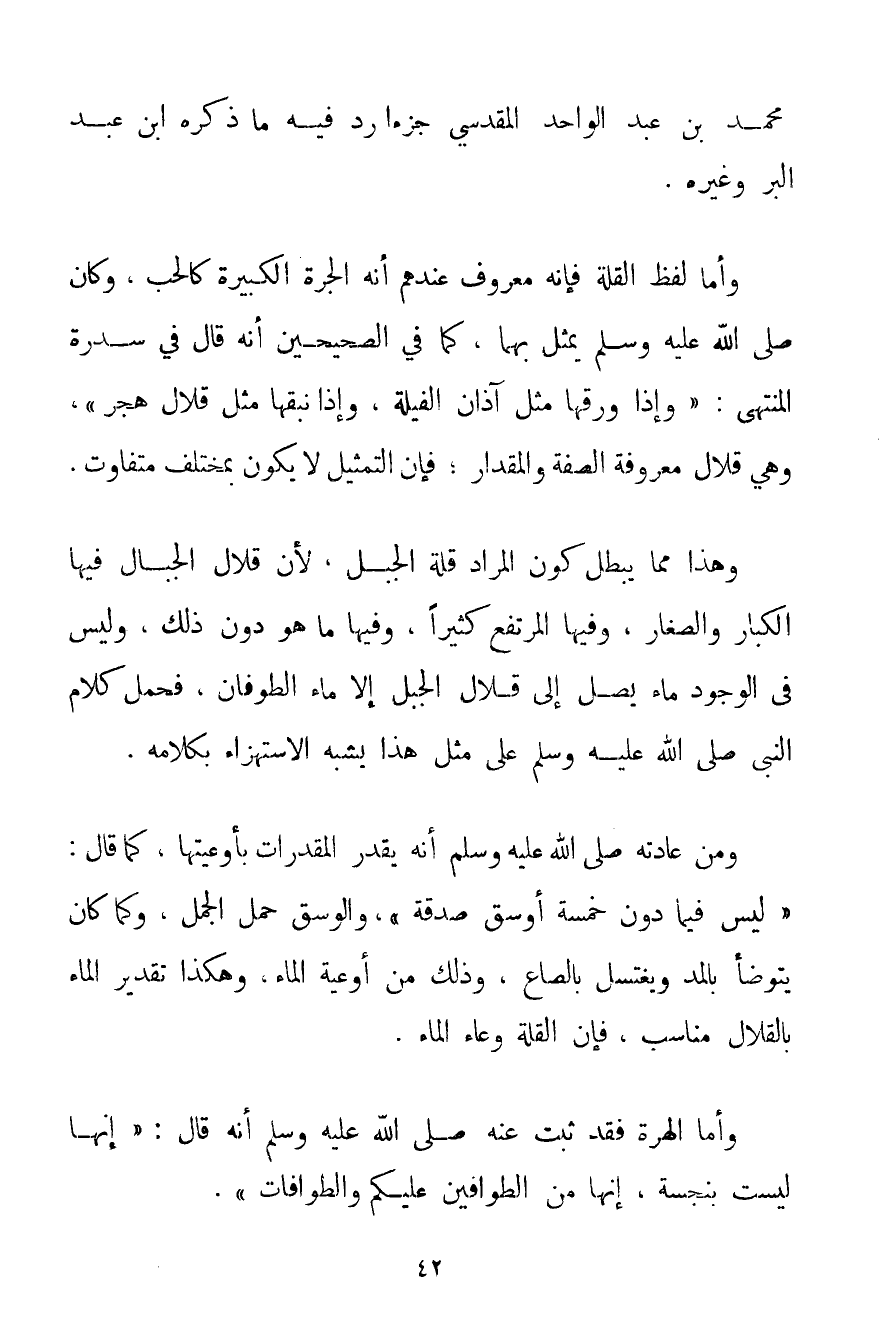 محمد بن عبد الواحد المقدسي جزءا رد فيه ما ذكره ابن عبد
البر وغيره .
وأما لفظ القلة فإنه معروف عندهم أنه الجرة الكبيرة كالحب ، وكان
صلى الله عليه وسلم يمثل بهما ، كما في الصحيحين أنه قال في سدرة
المنتهى : « وإذا ورقها مثل آذان الفيلة ، وإذا نبقها مثل قلال هجر » ،
وهي قلال معروفة الصفة والمقدار ؛ فإن التمثيل لا يكون بمختلف متفاوت .
وهذا مما يبطل كون المراد قلة الجبل ، لأن قلال الجبال فيها
الكبار والصغار ، وفيها المرتفع كثيراً ، وفيها ما هو دون ذلك ، وليس
فى الوجود ماء يصل إلى قلال الجبل إلا ماء الطوفان ، فحمل كلام
النبى صلى الله عليه وسلم على مثل هذا يشبه الاستهزاء بكلامه .
ومن عادته صلى الله عليه وسلم أنه يقدر المقدرات بأوعيتها ، كما قال :
« ليس فيما دون خمسة أوسق صدقة » ، والوسق حمل الجمل ، وكما كان
يتوضأ بالمد ويغتسل بالصاع ، وذلك من أوعية الماء ، وهكذا تقدير الماء
بالقلال مناسب ، فإن القلة وعاء الماء .
وأما الهرة فقد ثبت عنه صلى الله عليه وسلم أنه قال : « إنها
ليست بنجسة ، إنها من الطوافين عليكم والطوافات » .
٤٢